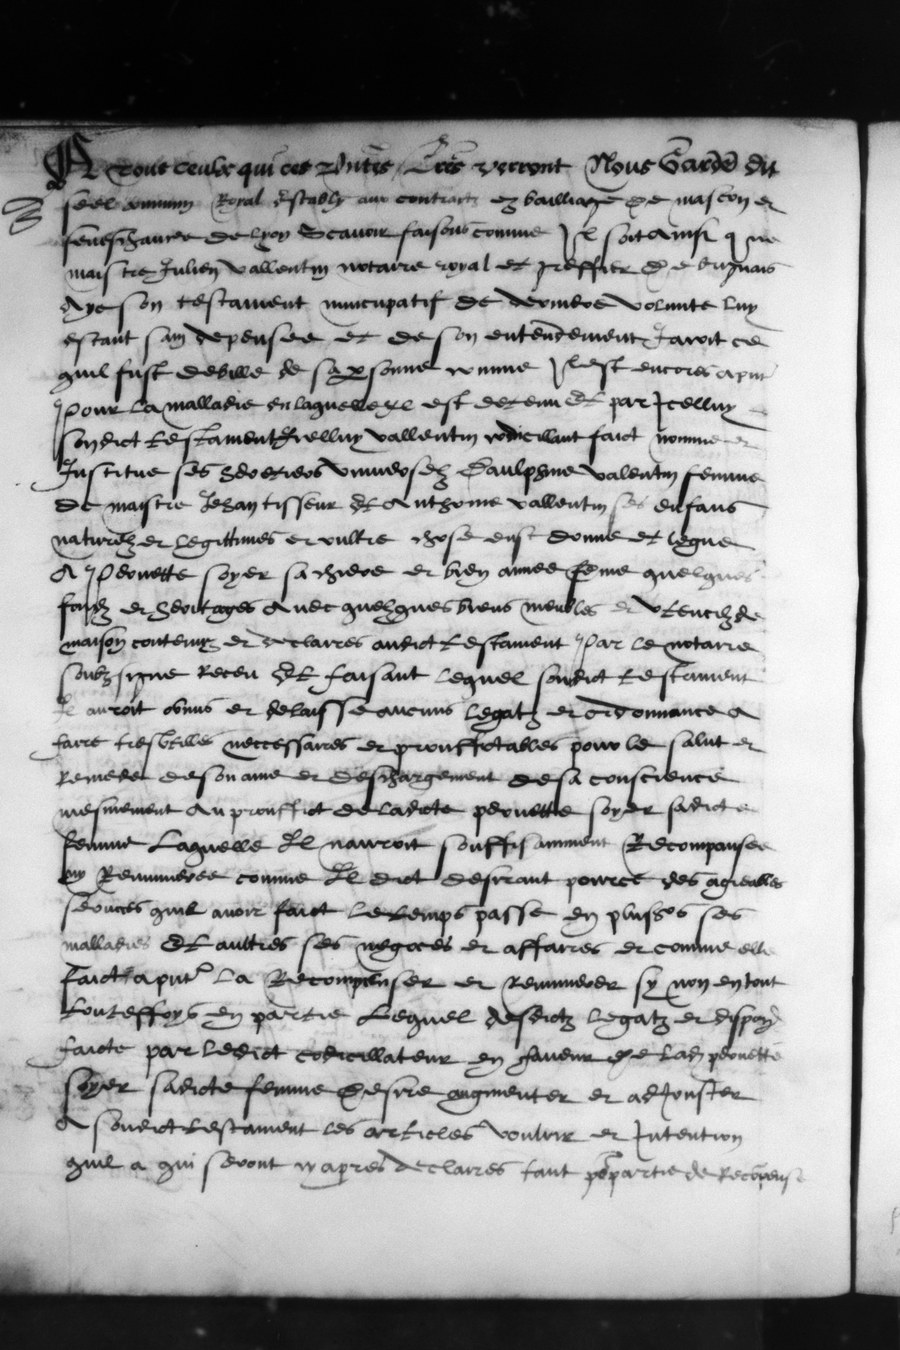 A Tous ceulx qui ces pntes lres verront Nous Garde du
seel commun Royal estably aux contractz ez bailliage de mascon et
seneschaucee de lyon Scavoir faisons comme Il soit ainsi que
maistre Julien Vallentin notaire royal et greffier de
Aye son testament nuncupatif de derniere volunte luy
estant sain de pensee et de son entendement Jacoit ce
quil fust debille de sa psonne comme Il est encores a pnt
Pour la malladie en laquelle Il est detenu Et par Icelluy
sondict testament Icelluy Vallentin codicillant faict nomme et
Institue ses heritiers universelz Daulphine Valentin femme
de maistre Jehan tisseur Et Anthoine Vallentin ses enfans
naturelz et legittimes et oultre chose eust donne et legue
A Pernette soyer sa chiere et bien aimee feme quelques
fondz et heritages Avec quelques biens meubles et Utencilz de
maison contenuz et declarres audict testament Par le notaire
soubzsigne Receu Et faisant lequel sondict testament
Il auroit obmis et delaisse aucuns legatz et ordonnance a
faire tresvtilles neccessaires et prouffitables pour le salut et
Remede de son ame et deschargement de sa conscience
mesmement Au prouffict de ladicte pernette soyer sadicte
femme Laquelle Il nauroit souffisamment Recompansee
ny Remuneree comme Il dict desirant pource des agreables
services quil avoir faict le temps passe en plusrs ses
malladies Et aultres ses negoces et affaires et comme elle
faict a pnt La Recompenser et Remunerer sy non en tout
touteffoys en partie Lequel desdictz legatz et
faicte par ledict codicillateur en faveur de lad pernette
soyer sadicte femme Desire augmenter et adjouster
A sondict testament les articles voulloir et Intention
quil a qui seront cyapres declarres tant partie de